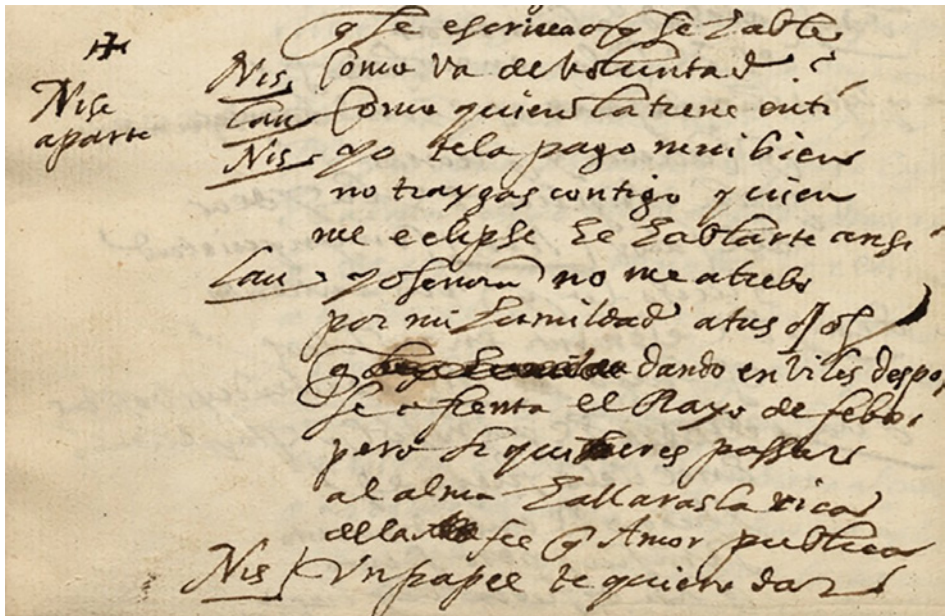 q se escriua o q se hable
Nise
aparte
Nis como va de voluntad?
Lau como quien la tiene en ti
Nis yo te la pago mui bien
no traygas contigo quien
me eclipse el hablarte ansi
Lau yo señora no me atrebo
por mi humildad a tus ojos
q dando en viles despo
se afrenta el Rayo de febo,
pero si quieres passar
al alma hallarasla rica
de la fee q Amor publica
Nis Un papel te quiero dar